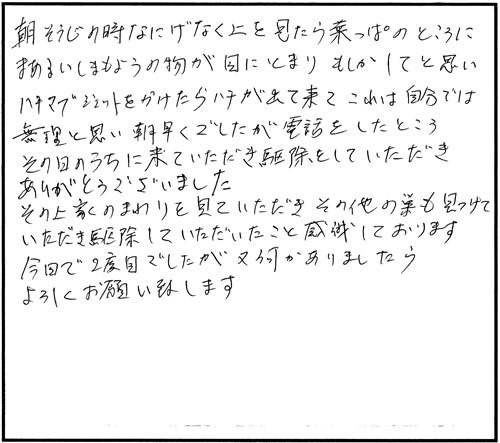 朝そうじの時なにげなく上を見たら葉っぱのところに
まあるいしまもようの物が目にとまり もしかしてと思い
ハチマグジェットをかけたらハチが出て来て これは自分では
無理と思い 朝早くでしたが電話をしたところ
その日のうちに来ていただき駆除をしていただき
ありがとうございました
その上家のまわりを見ていただき その他の巣も見つけて
いただき駆除していただいたこと感謝しております
今回で2度目でしたが 又何かありましたら
よろしくお願い致します